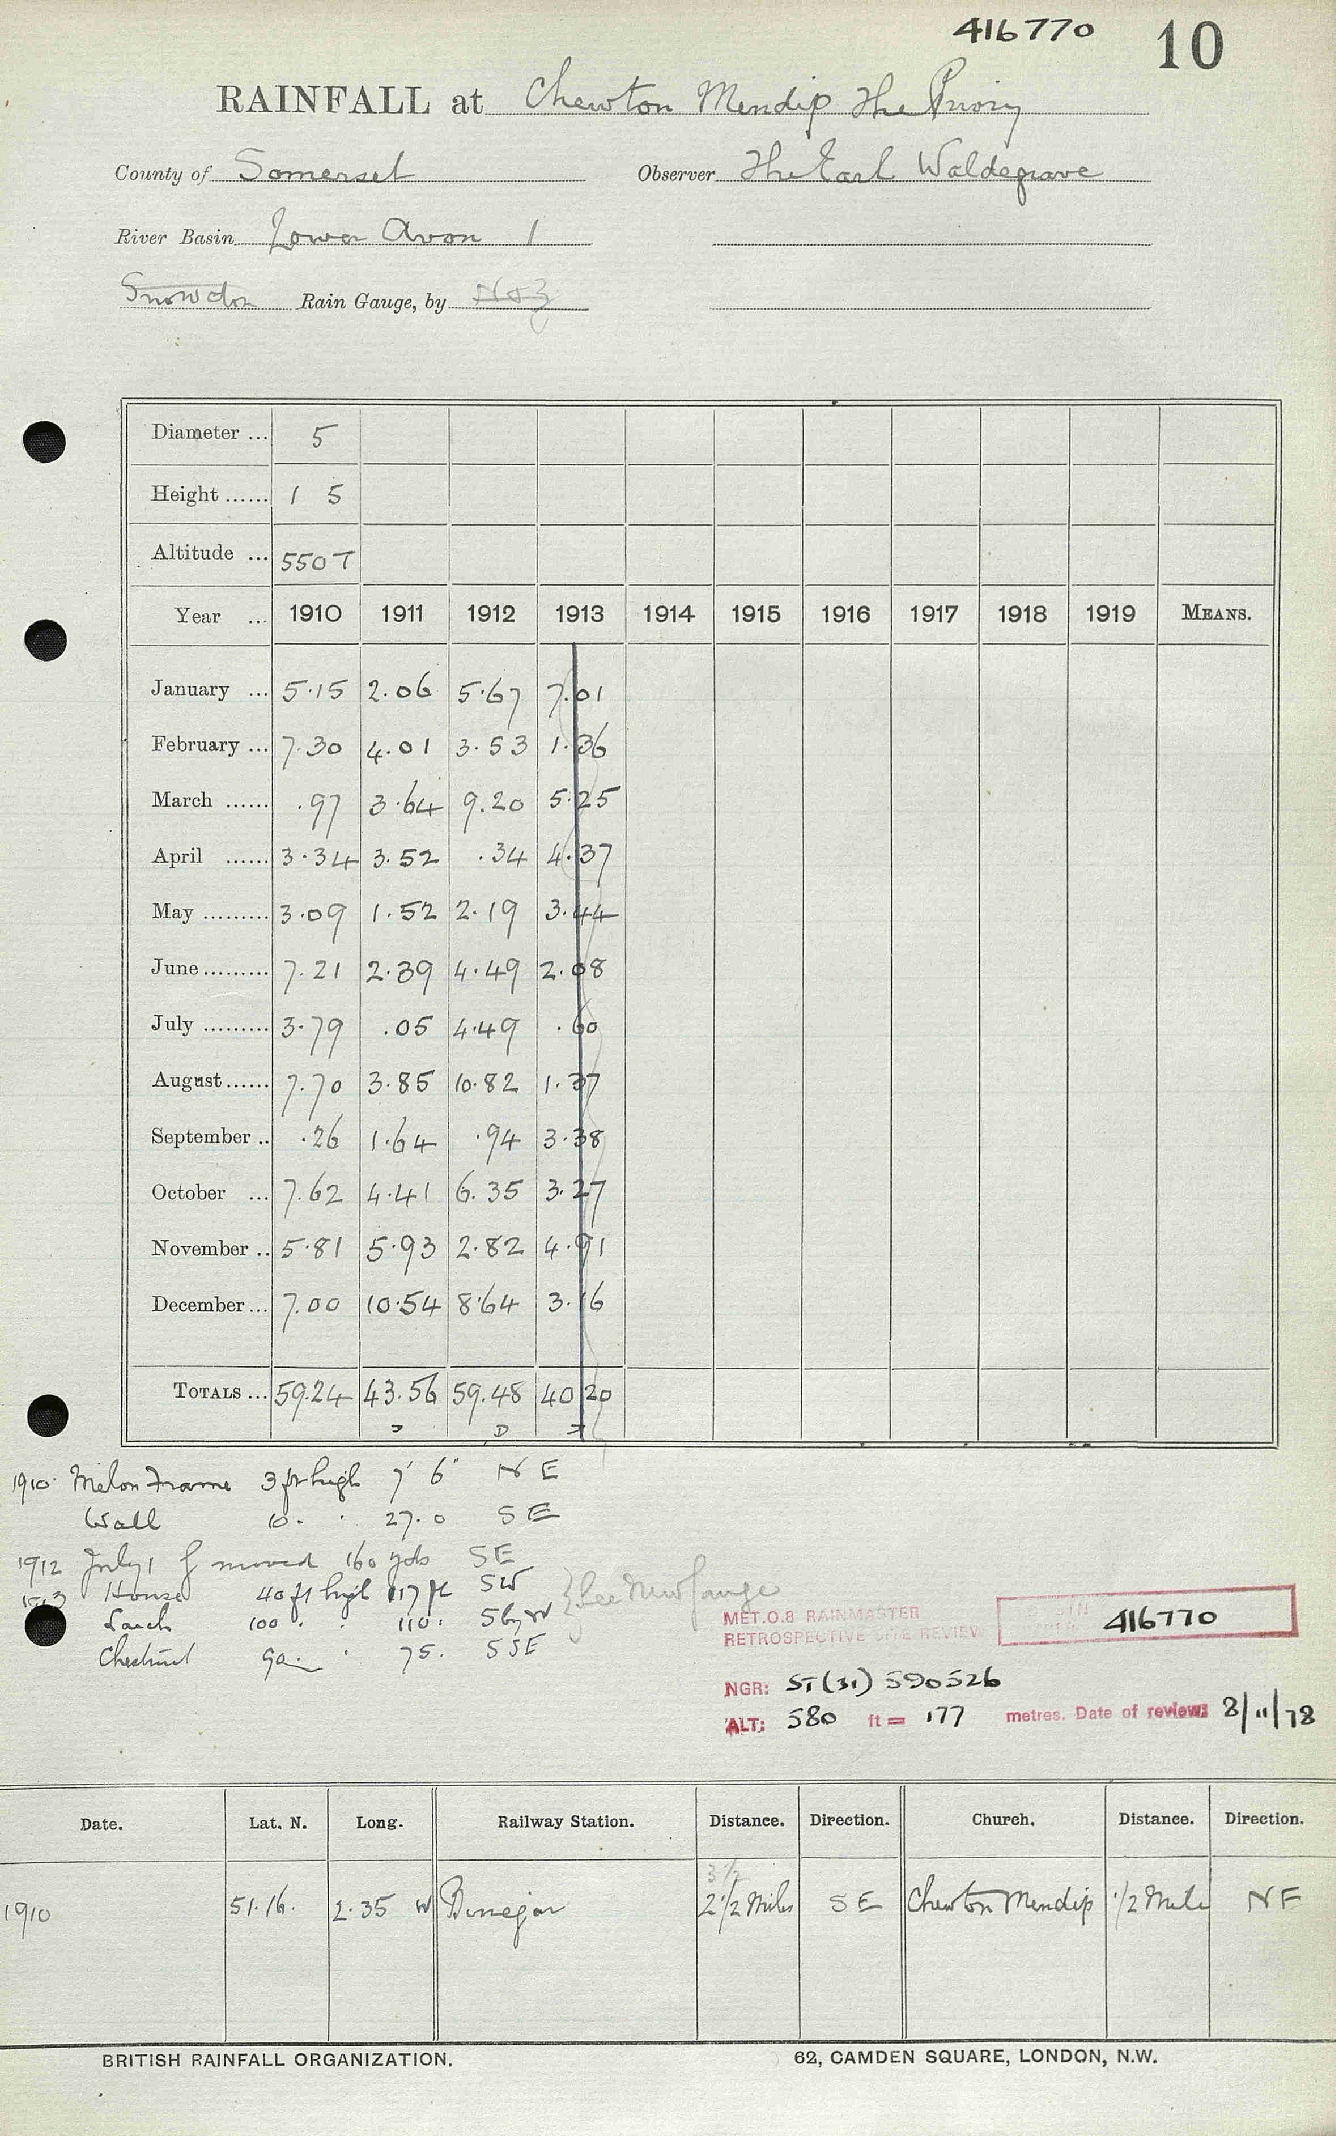 416770 10
RAINFALL at Chewton Mendip The Priory
County of Somerset Observer The Earl Waldegrave
River Basin Lower Avon 1
Snowdon Rain Gauge, by N & Z
Diameter ... 5
Height ...... 1 5
Altitude ... 550 T
Year ... 1910 1911 1912 1913 1914 1915 1916 1917 1918 1919 MEANS.
January ... 5.15 2.06 5.67 7.01
February ... 7.30 4.01 3.53 1.36
March ...... .97 3.64 9.20 5.25
April ...... 3.34 3.52 .34 4.37
May ......... 3.09 1.52 2.19 3.44
June ......... 7.21 2.39 4.49 2.08
July ......... 3.79 .05 4.49 .60
August ...... 7.70 3.85 10.82 1.37
September .. .26 1.64 .94 3.38
October ... 7.62 4.41 6.35 3.27
November .. 5.81 5.93 2.82 4.91
December ... 7.00 10.54 8.64 3.16
TOTALS ... 59.24 43.56 59.48 40.20
1910 Melon Frame 3 ft high 7' 6" N E
Wall 10 . . 27. 0 S E
1912 July 1 moved 160 yds SE
1913 House 40 ft high 117 ft SW
Larch 100 . . 110 . S by W
Chestnut 90 . . 75 . SSE
See New Gauge
MET.O.8 RAINMASTER
RETROSPECTIVE SITE REVIEW
416770
NGR: ST (31) 590526
ALT: 580 ft = 177 metres. Date of review: 8/11/78
Date. Lat. N. Long. Railway Station. Distance. Direction. Church. Distance. Direction.
3 1/2
1910 51.16. 2.35 W Binegar 2 1/2 Miles S E Chewton Mendip 1/2 Mile N E
BRITISH RAINFALL ORGANIZATION. 62, CAMDEN SQUARE, LONDON, N.W.